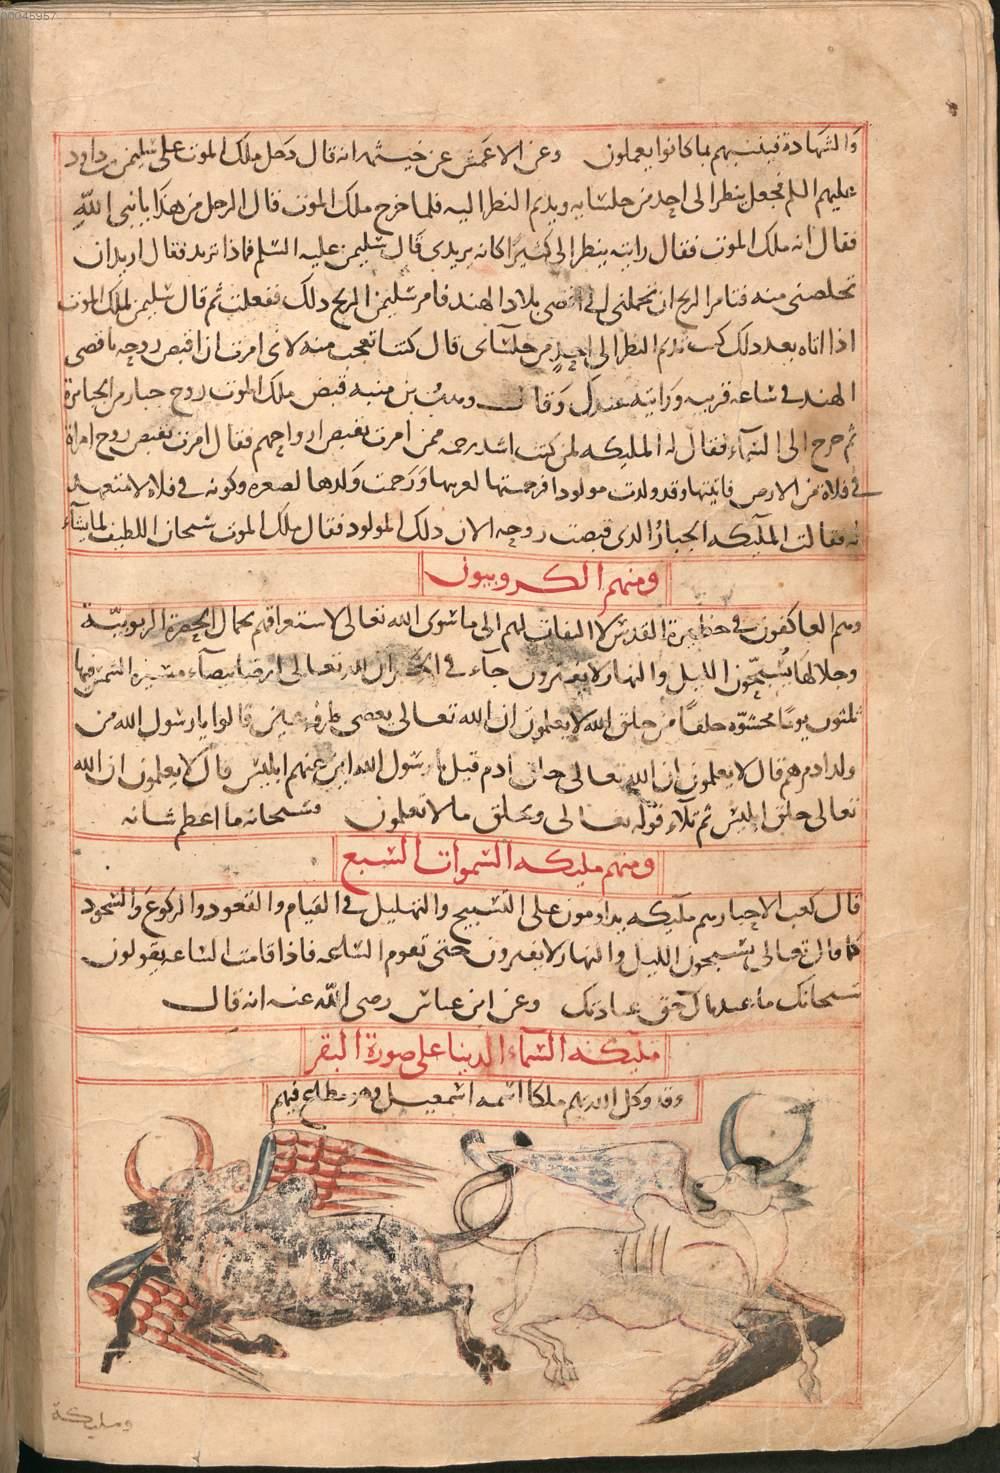 00046957
والشهادة فينبئهم بما كانوا يعملون وعن الاعمش عن خيثمه انه قال دخل ملك الموت على سليمن بن داود
عليهم السلم فجعل ينظر الى احد من جلسايه ويديم النظر اليه فلما خرج ملك الموت قال الرجل من هذا يا نبى الله
فقال انه ملك الموت فقال رايته ينظر الى كثيرا كانه يريدنى قال سليمن عليه السلم فماذا تريد فقال اريد ان
تخلصنى منه فتامر الريح ان تحملنى الى اقصى بلاد الهند فامر سليمن الريح ذلك ففعلت ثم قال سليمن لملك الموت
اذا اتاه بعد ذلك كنت تديم النظر الى احد من جلسآى قال كنت اتعجب منه لانى امرت ان اقبض روحه باقصى
الهند فى ساعه قريبه ورايته عندك وقال وهب بن منبه قبض ملك الموت روح جبار من الجبابرة
ثم عرج الى السمآء فقال له المليكه لمن كنت اشد رحمه ممن امرت بقبض ارواحهم فقال امرت بقبض روح امراة
فى فلاة من الارض فاتيتها وقد ولدت مولودا فرحمتها لغربتها ورحمت ولدها لصغره وكونه فى فلاة لا متعهد
له فقالت المليكه الجبار الذى قبضت روحه الان ذلك المولود فقال ملك الموت سبحان اللطيف لما يشآء
ومنهم الكروبيون
وهم العاكفون فى حظيرة القدس لا التفات لهم الى ما سوى الله تعالى لاستغراقهم بجمال الحضرة الربوبيّة
وجلالها يُسبّحون الليل والنهار لا يفترون جآء فى الخبر ان لله تعالى ارضا بيضآء مسيرة الشمس فيها
ثلثون يوما محشوّه خلقًا من خلق الله لا يعلمون ان الله تعالى يعصى طرفة عين قالوا يا رسول الله من
ولد ادم هم قال لا يعلمون ان الله تعالى خلق ادم قيل يا رسول الله اين عنهم ابليس قال لا يعلمون ان الله
تعالى خلق ابليس ثم تلآء قوله تعالى ويخلق ما لا تعلمون فسبحانه ما اعظم شانه
ومنهم مليكه السموات السبع
قال كعب الاحبار هم مليكه يداومون على التسبيح والتهليل فى القيام والقعود والركوع والسجود
كما قال تعالى يسبحون الليل والنهار لا يفترون حتى تقوم الساعه فاذا قامت الساعه يقولون
سبحانك ما عبدناك حق عبادتك وعن ابن عباس رضى الله عنه انه قال
مليكه السمآء الدينا على صورة البقر
وقد وكل الله بهم ملكا اسمه اسمعيل وهو مطلع فيهم
ومليكة